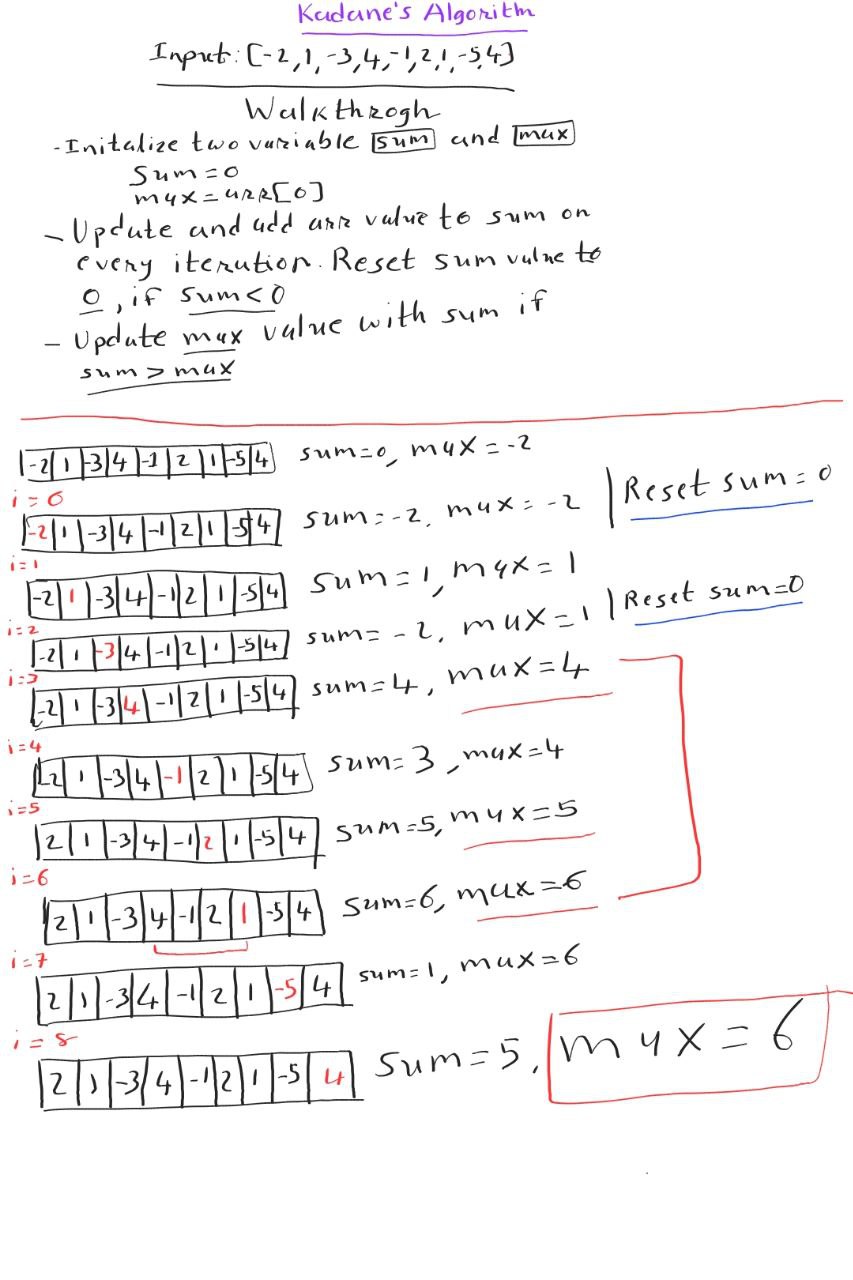 Kadane's Algorithm
Input: [-2,1,-3,4,-1,2,1,-5,4]
Walkthrogh
-Initalize two variable sum and max
Sum=0
max=arr[0]
- Update and add arr value to sum on
every iteration. Reset sum value to
0, if sum<0
- Update max value with sum if
sum > max
-2 1 -3 4 -1 2 1 -5 4 sum=0, max=-2
i=0
-2 1 -3 4 -1 2 1 -5 4 sum=-2, max=-2 | Reset sum=0
i=1
-2 1 -3 4 -1 2 1 -5 4 sum=1, max=1
i=2
-2 1 -3 4 -1 2 1 -5 4 sum=-2, max=1 | Reset sum=0
i=3
-2 1 -3 4 -1 2 1 -5 4 sum=4, max=4
i=4
-2 1 -3 4 -1 2 1 -5 4 sum=3, max=4
i=5
2 1 -3 4 -1 2 1 -5 4 sum=5, max=5
i=6
2 1 -3 4 -1 2 1 -5 4 sum=6, max=6
i=7
2 1 -3 4 -1 2 1 -5 4 sum=1, max=6
i=8
2 1 -3 4 -1 2 1 -5 4 sum=5, max=6